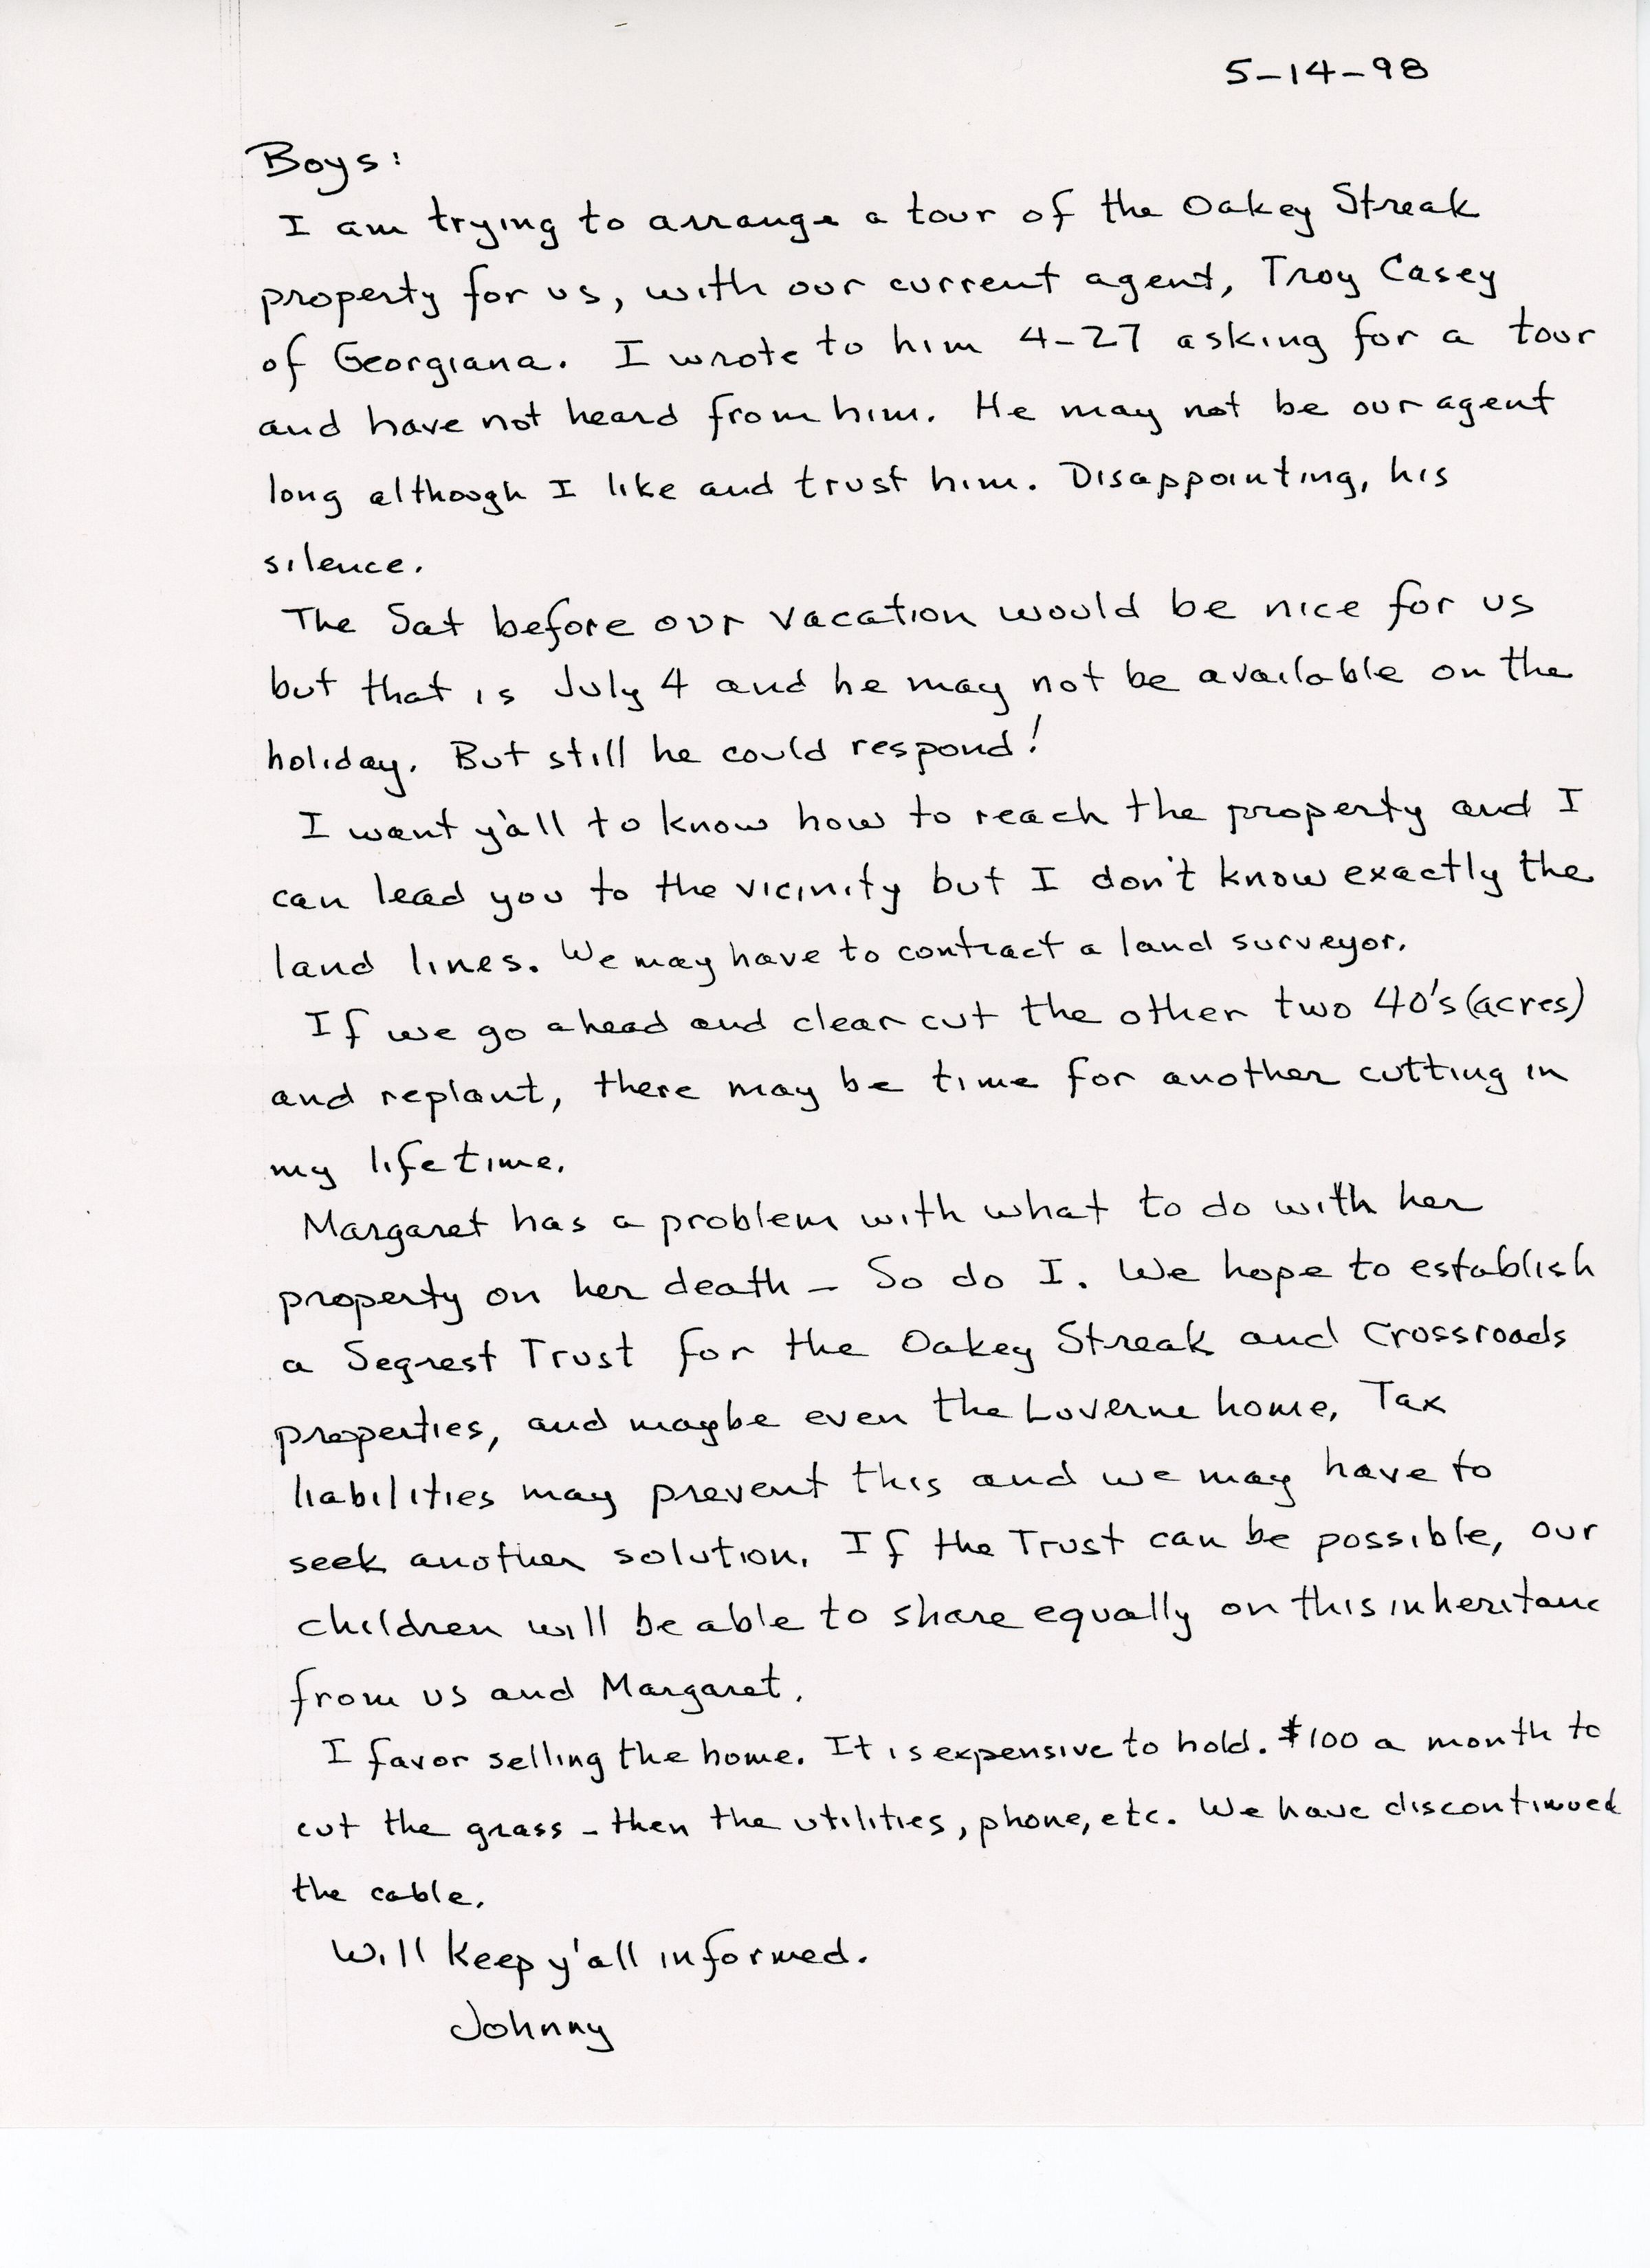 5-14-98
Boys:
I am trying to arrange a tour of the Oakey Streak
property for us, with our current agent, Troy Casey
of Georgiana. I wrote to him 4-27 asking for a tour
and have not heard from him. He may not be our agent
long although I like and trust him. Disappointing, his
silence.
The Sat before our vacation would be nice for us
but that is July 4 and he may not be available on the
holiday. But still he could respond!
I want y'all to know how to reach the property and I
can lead you to the vicinity but I don't know exactly the
land lines. We may have to contract a land surveyor.
If we go ahead and clear cut the other two 40's (acres)
and replant, there may be time for another cutting in
my lifetime.
Margaret has a problem with what to do with her
property on her death - So do I. We hope to establish
a Segrest Trust for the Oakey Streak and Crossroads
properties, and maybe even the Luverne home. Tax
liabilities may prevent this and we may have to
seek another solution. If the Trust can be possible, our
children will be able to share equally on this inheritanc
from us and Margaret.
I favor selling the home. It is expensive to hold. $100 a month to
cut the grass - then the utilities, phone, etc. We have discontinued
the cable.
Will keep y'all informed.
Johnny